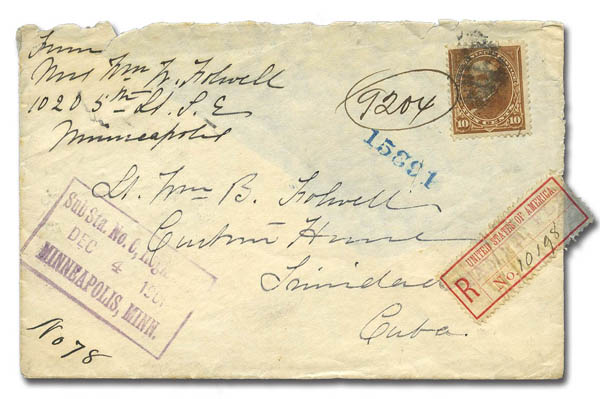 From
Mrs Wm W. Folwell
1020 5th St. S. E
Minneapolis
9204
10 10
TEN CENTS
15391
Lt. Wm B. Folwell
Custom House
Trinidad
Cuba.
Sub Sta. No. 6,
DEC 4
MINNEAPOLIS, MINN.
UNITED STATES OF AMERICA.
R
No. 10198
No 78